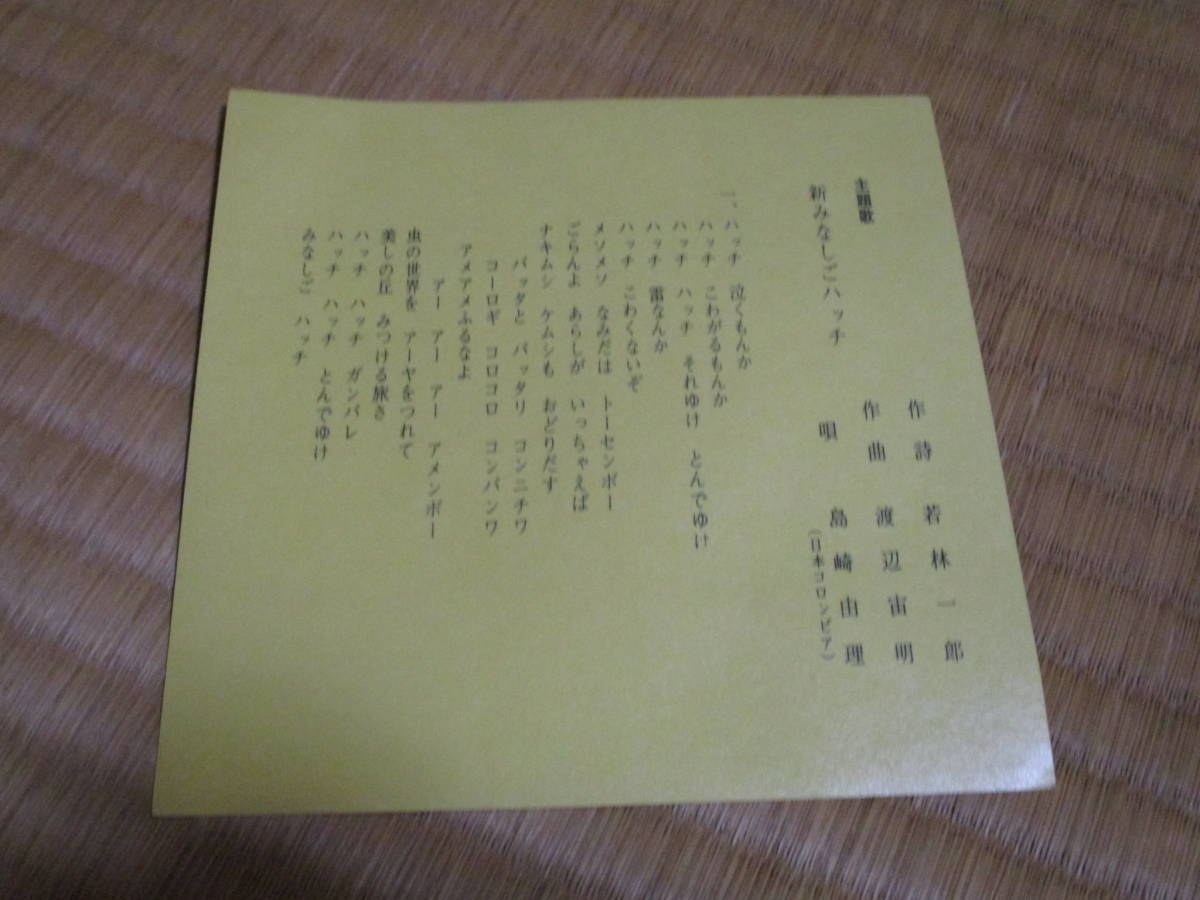 主題歌
新みなしごハッチ
作詩 若林一郎
作曲 渡辺宙明
唄 島崎由理
(日本コロンビア)
一、ハッチ 泣くもんか
ハッチ こわがるもんか
ハッチ ハッチ それゆけ とんでゆけ
ハッチ 雷なんか
ハッチ こわくないぞ
メソメソ なみだは トーセンボー
ごらんよ あらしが いっちゃえば
ナキムシ ケムシも おどりだす
バッタと バッタリ コンニチワ
コーロギ コロコロ コンバンワ
アメアメふるなよ
アー アー アー アメンボー
虫の世界を アーヤをつれて
美しの丘 みつける旅さ
ハッチ ハッチ ガンバレ
ハッチ ハッチ とんでゆけ
みなしご ハッチ